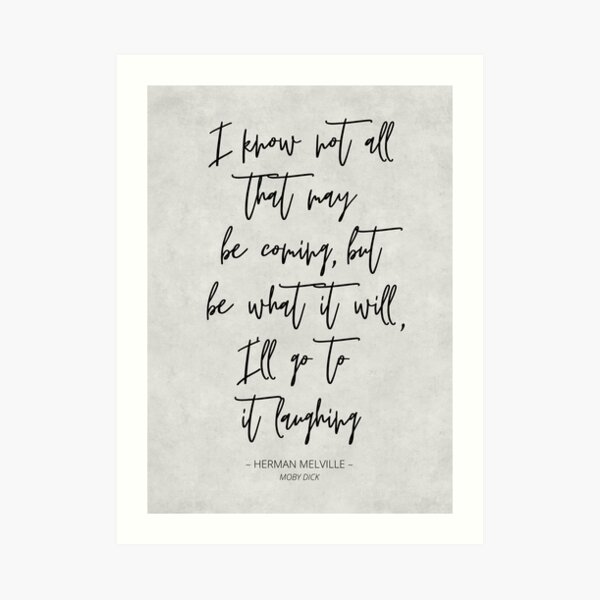 I know not all
that may
be coming, but
be what it will,
I'll go to
it laughing
– HERMAN MELVILLE –
MOBY DICK